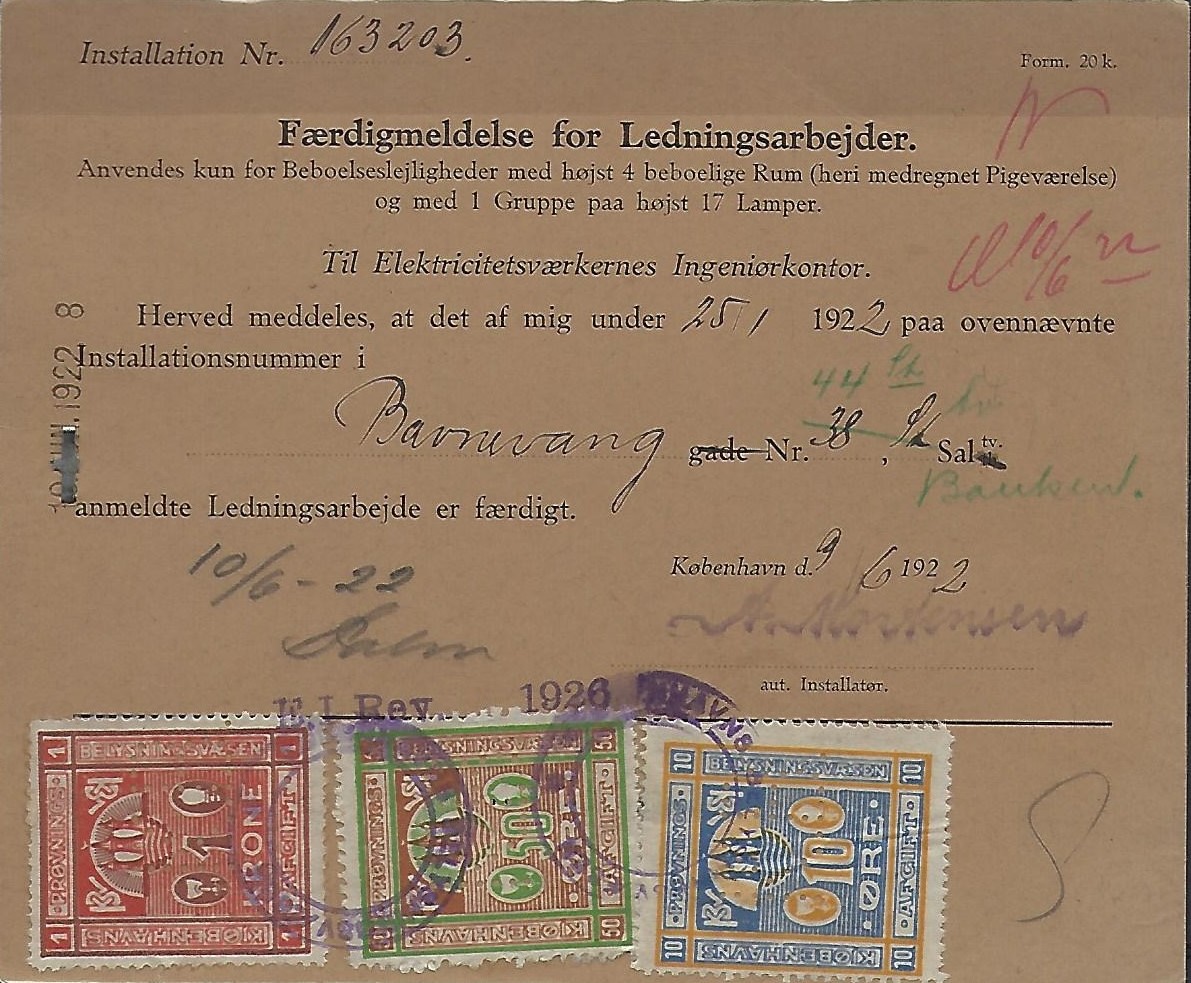 Installation Nr. 163203.
Form. 20 k.
Færdigmeldelse for Ledningsarbejder.
Anvendes kun for Beboelseslejligheder med højst 4 beboelige Rum (heri medregnet Pigeværelse)
og med 1 Gruppe paa højst 17 Lamper.
Til Elektricitetsværkernes Ingeniørkontor.
10/6 22
Herved meddeles, at det af mig under 25/1 1922 paa ovennævnte
Installationsnummer i
44 St
Bavnevang gade Nr. 38, St Sal tv.
anmeldte Ledningsarbejde er færdigt.
10 JUN. 1922 8
10/6-22
København d. 9/6 1922
A. Mortensen
aut. Installatør.
El Rev. 1926
1 BELYSNINGSVÆSEN 1
PRØVNINGS-
1 KRONE
AFGIFT
1 KJØBENHAVNS 1
50 BELYSNINGSVÆSEN 50
PRØVNINGS-
50 ØRE
AFGIFT
50 KJØBENHAVNS 50
10 BELYSNINGSVÆSEN 10
PRØVNINGS-
10 ØRE
AFGIFT
10 KJØBENHAVNS 10